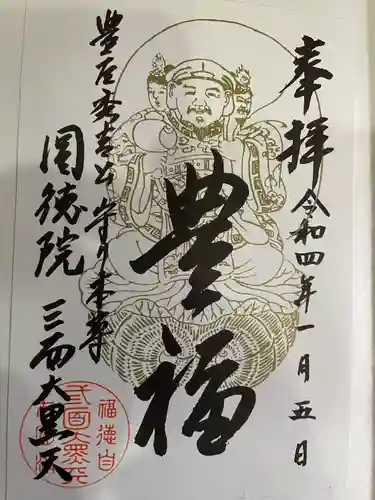 奉拝
令和四年一月五日
豊福
豊臣秀吉公守り本尊
圓徳院
三面大黒天
福徳自